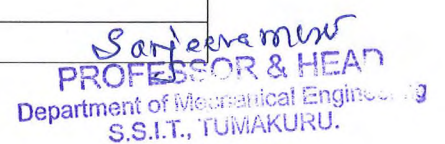 PROFESSOR & HEAD
Department of Mechanical Engineering
S.S.I.T., TUMAKURU.